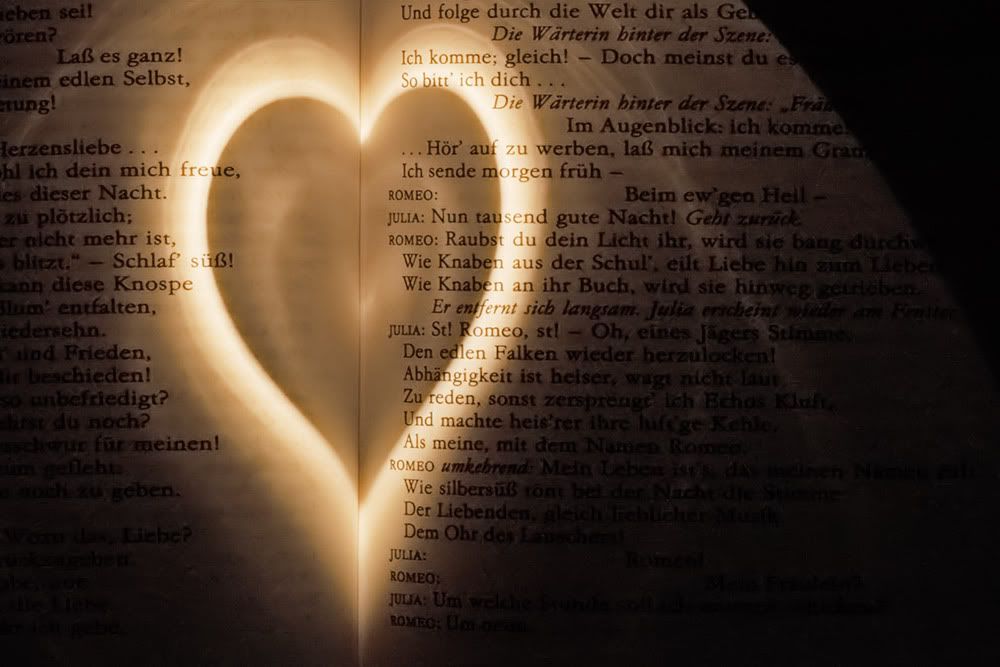 ieben sei!
ören?
Laß es ganz!
inem edlen Selbst,
etung!
Herzensliebe . . .
hl ich dein mich freue,
es dieser Nacht.
zu plötzlich;
er nicht mehr ist,
blitzt.“ – Schlaf’ süß!
ann diese Knospe
Blum’ entfalten,
iedersehn.
und Frieden,
beschieden!
so unbefriedigt?
du noch?
sschwur für meinen!
gefleht:
noch zu geben.
Wozu das, Liebe?
Und folge durch die Welt dir als Geb
Die Wärterin hinter der Szene:
Ich komme; gleich! – Doch meinst du es
So bitt’ ich dich . . .
Die Wärterin hinter der Szene: „Fräu
Im Augenblick: ich komme!
. . . Hör’ auf zu werben, laß mich meinem Gram
Ich sende morgen früh –
ROMEO: Beim ew’gen Heil –
JULIA: Nun tausend gute Nacht! Geht zurück.
ROMEO: Raubst du dein Licht ihr, wird sie bang durchw
Wie Knaben aus der Schul’, eilt Liebe hin zum Lieben
Wie Knaben an ihr Buch, wird sie hinweg getrieben.
Er entfernt sich langsam. Julia erscheint wieder am Fenster
JULIA: St! Romeo, st! – Oh, eines Jägers Stimme,
Den edlen Falken wieder herzulocken!
Abhängigkeit ist heiser, wagt nicht laut
Zu reden, sonst zersprengt’ ich Echos Kluft,
Und machte heis’rer ihre luft’ge Kehle,
Als meine, mit dem Namen Romeo.
ROMEO umkehrend: Mein Leben ist’s, das meinen Namen ruft.
Wie silbersüß tönt bei der Nacht die Stimme
Der Liebenden, gleich lieblicher Musik
Dem Ohr des Lauschers!
JULIA: Romeo!
ROMEO: Mein Fräulein?
JULIA: Um welche Stunde
ROMEO: Um neun.